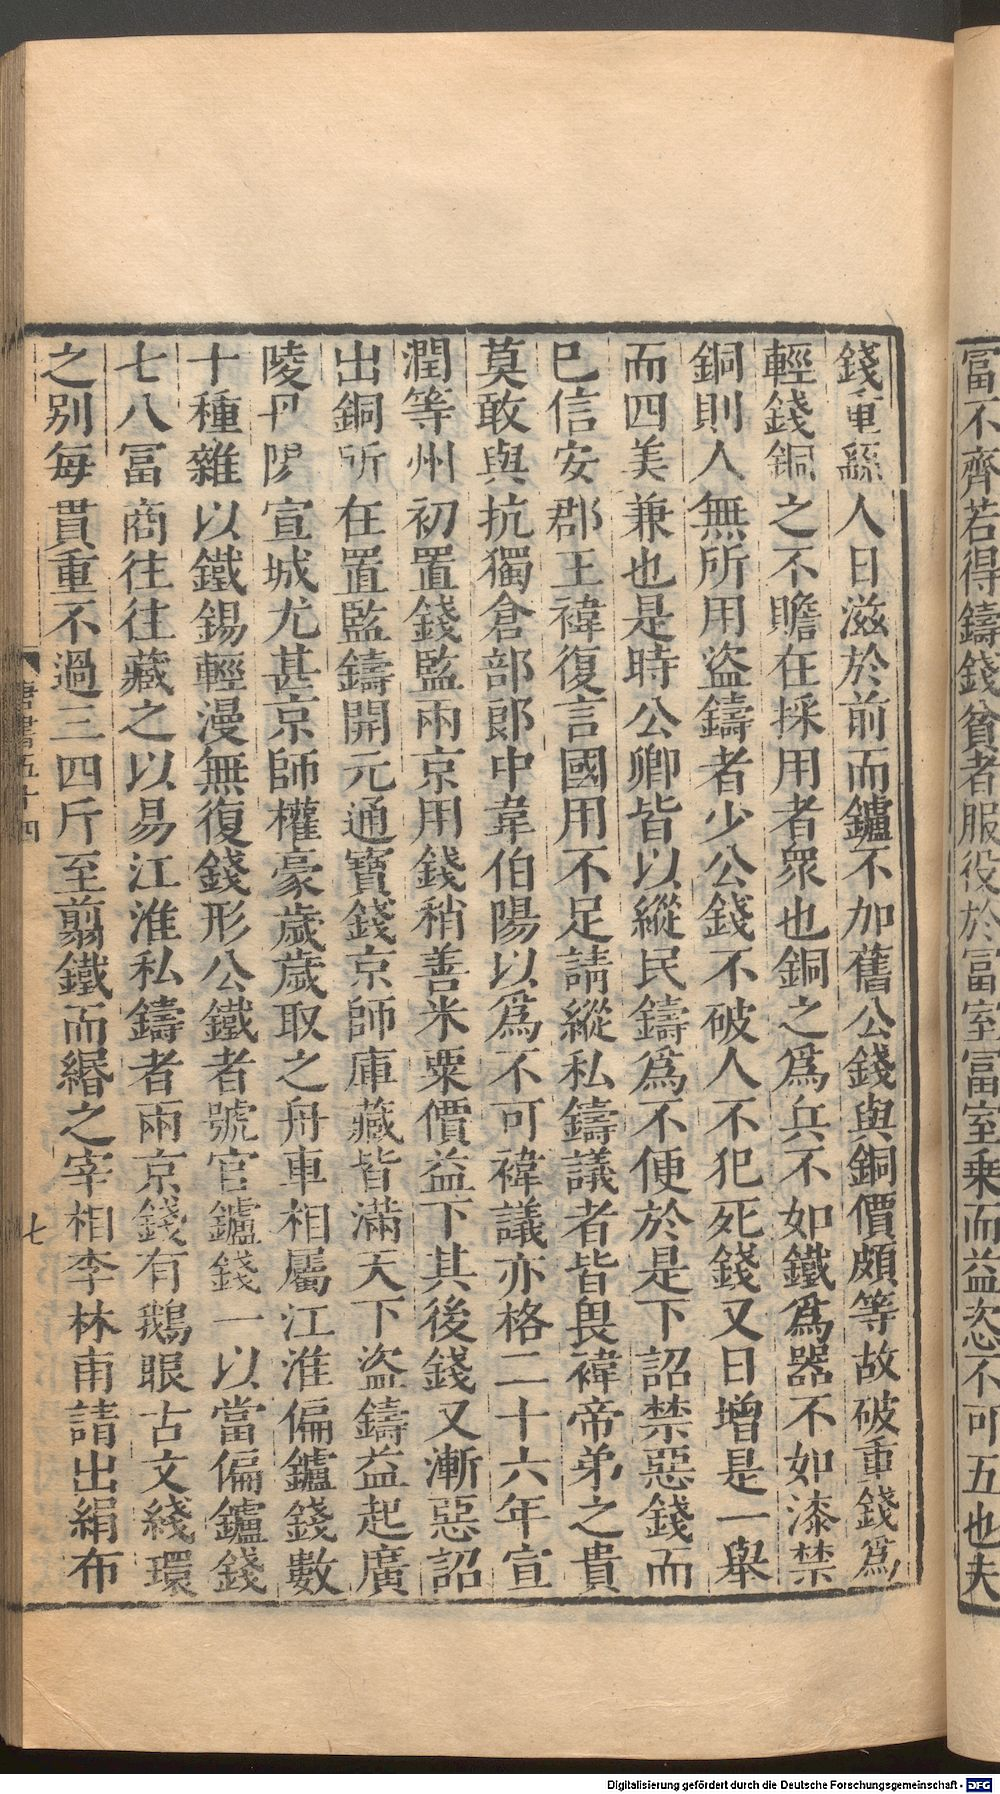 富不齊若得鑄錢貧者服役於富室富室乗而益恣不可五也夫
錢重繇人日滋於前而鑪不加舊公錢與銅價頗等故破重錢爲
輕錢銅之不贍在採用者衆也銅之爲兵不如鐵爲器不如漆禁
銅則人無所用盜鑄者少公錢不破人不犯死錢又日增是一舉
而四美兼也是時公卿皆以縱民鑄爲不便於是下詔禁惡錢而
已信安郡王禕復言國用不足請縱私鑄議者皆畏禕帝弟之貴
莫敢與抗獨倉部郎中韋伯陽以爲不可禕議亦格二十六年宣
潤等州初置錢監兩京用錢稍善米粟價益下其後錢又漸惡詔
出銅所在置監鑄開元通寶錢京師庫藏皆滿天下盜鑄益起廣
陵丹陽宣城尤甚京師權豪歲歲取之舟車相屬江淮偏鑪錢數
十種雜以鐵錫輕漫無復錢形公鐵者號官鑪錢一以當偏鑪錢
七八富商往往藏之以易江淮私鑄者兩京錢有鵝眼古文綫環
之別每貫重不過三四斤至翦鐵而緡之宰相李林甫請出絹布
唐書五十四
七
Digitalisierung gefördert durch die Deutsche Forschungsgemeinschaft - DFG